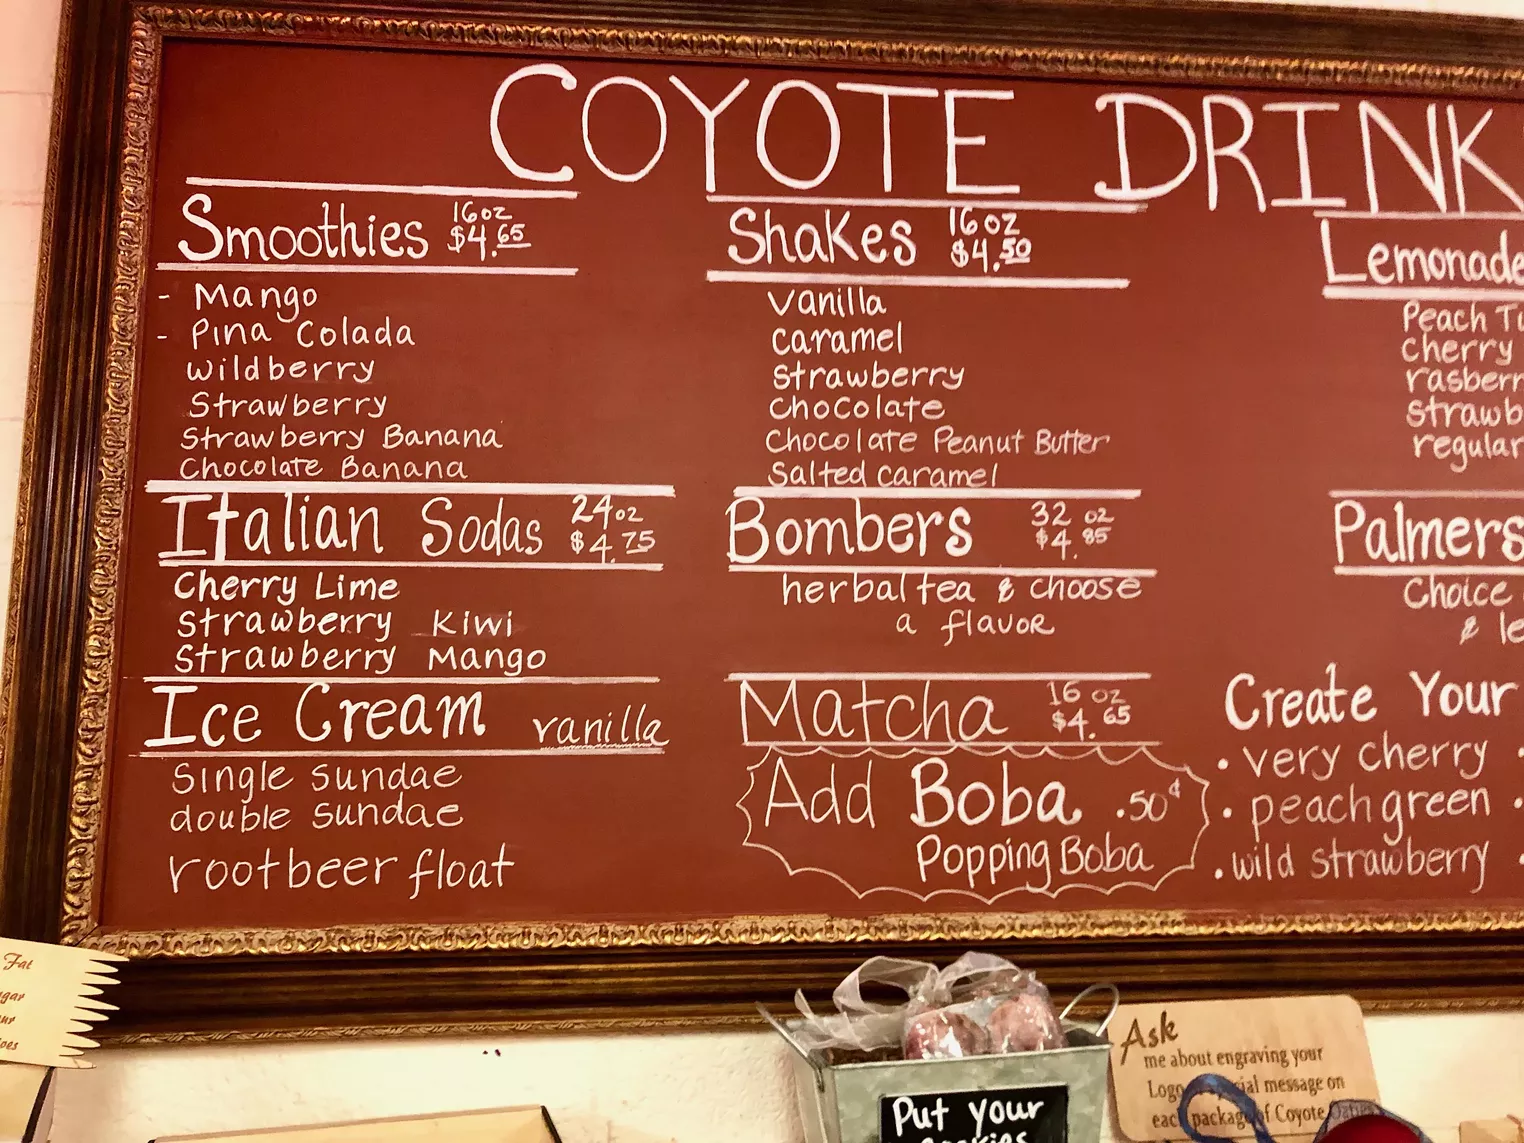 COYOTE DRINK
Smoothies 16oz $4.65
- Mango
- Pina Colada
wildberry
Strawberry
Strawberry Banana
Chocolate Banana
Italian Sodas 24oz $4.75
Cherry Lime
Strawberry Kiwi
Strawberry Mango
Ice Cream vanilla
single sundae
double sundae
rootbeer float
Shakes 16oz $4.50
vanilla
caramel
strawberry
chocolate
Chocolate Peanut Butter
Salted caramel
Bombers 32 oz $4.85
herbal tea & choose
a flavor
Matcha 16 oz $4.65
Add Boba .50¢
Popping Boba
Lemonade
Peach
cherry
regular
Palmers
Choice
&
Create Your
• very cherry •
• peach green •
• wild strawberry •
Fat
Ask
me about engraving your
message on
each package of Coyote
Put your